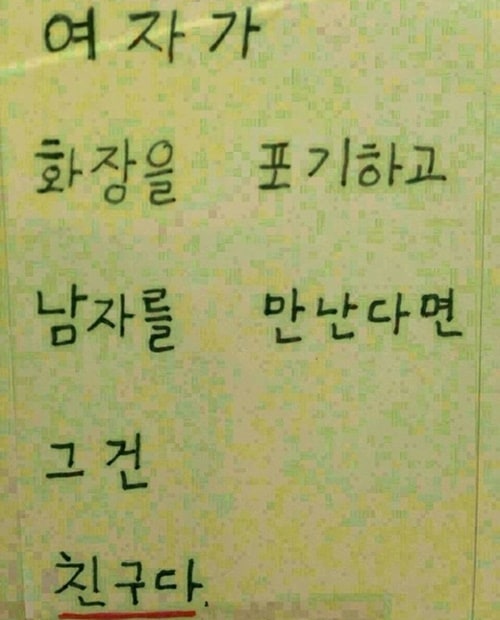 여자가
화장을 포기하고
남자를 만난다면
그건
친구다.